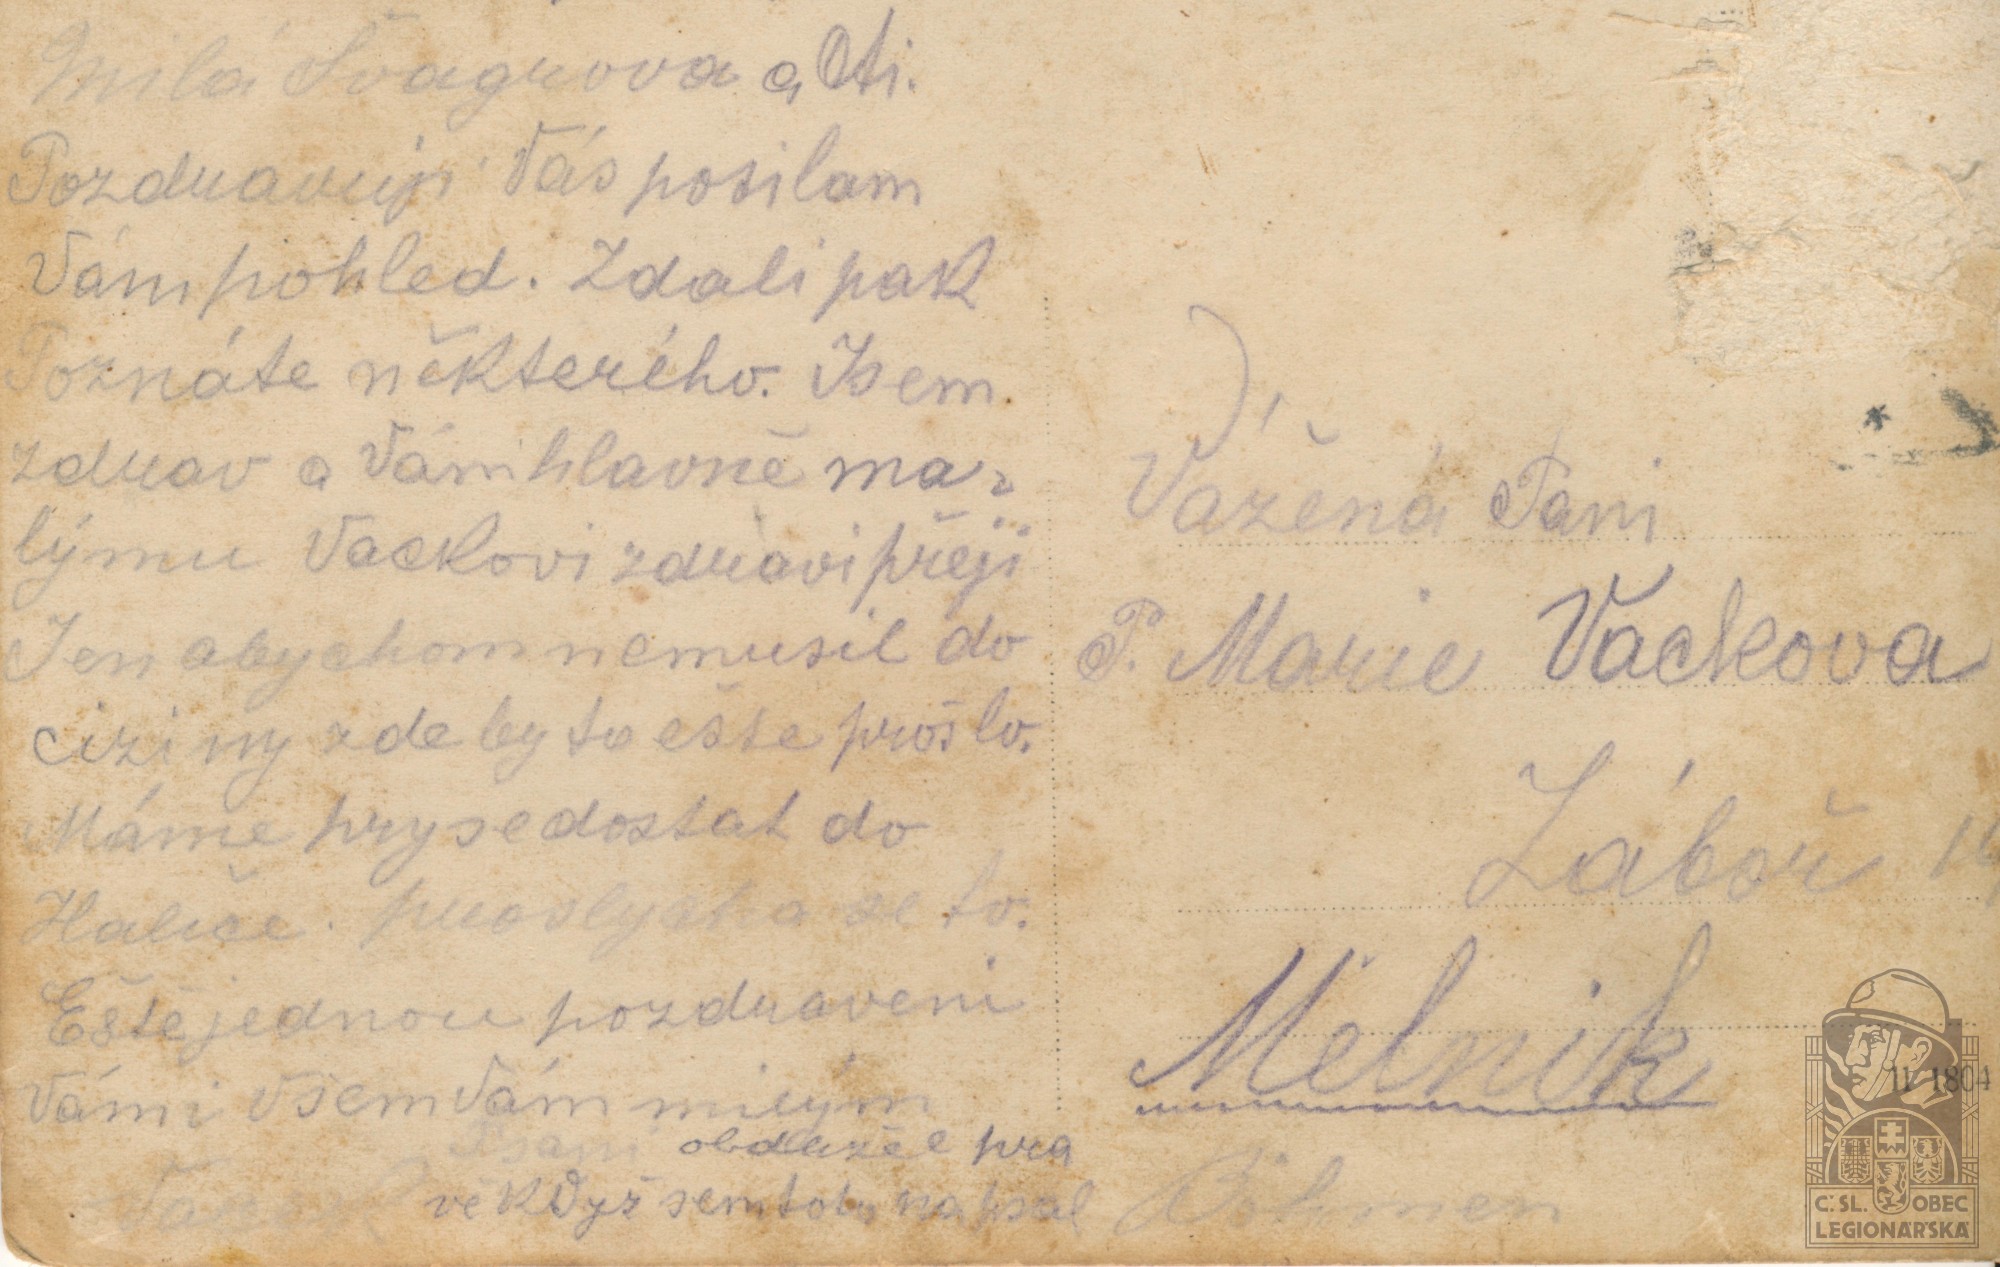 Milá Švagrova a Oti.
Pozdravuji Vás posilam
Vám pohled. Zdali pak
Poznáte některého. Jsem
zdrav a Vám hlavně ma-
lýmu Vackovi zdravi přeji
Jen abychom nemusil do
ciziny zde by to ešte prošlo.
Máme pry se dostat do
Haliče. proslycha se to.
Eště jednou pozdraveni
Vámi všem Vám milým
Psani obdržel pra
vě když sem toto napsal
Vážená Pani
P. Marie Vackova
Záboř 14
Mělnik
Böhmen
IV 1804
Č.SL. OBEC
LEGIONÁŘSKÁ